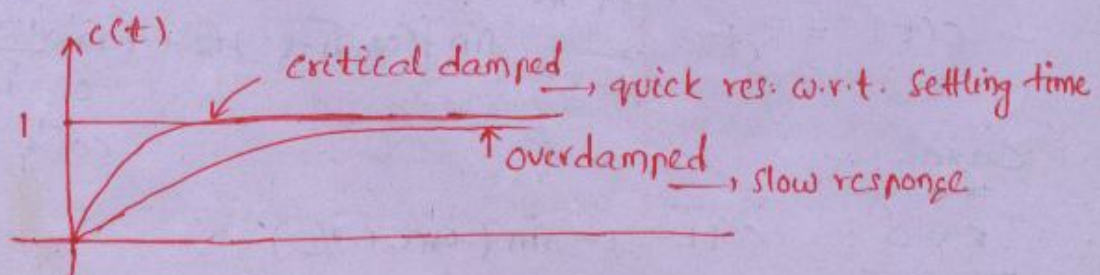 c(t)
critical damped → quick res. w.r.t. settling time
1
overdamped → slow response